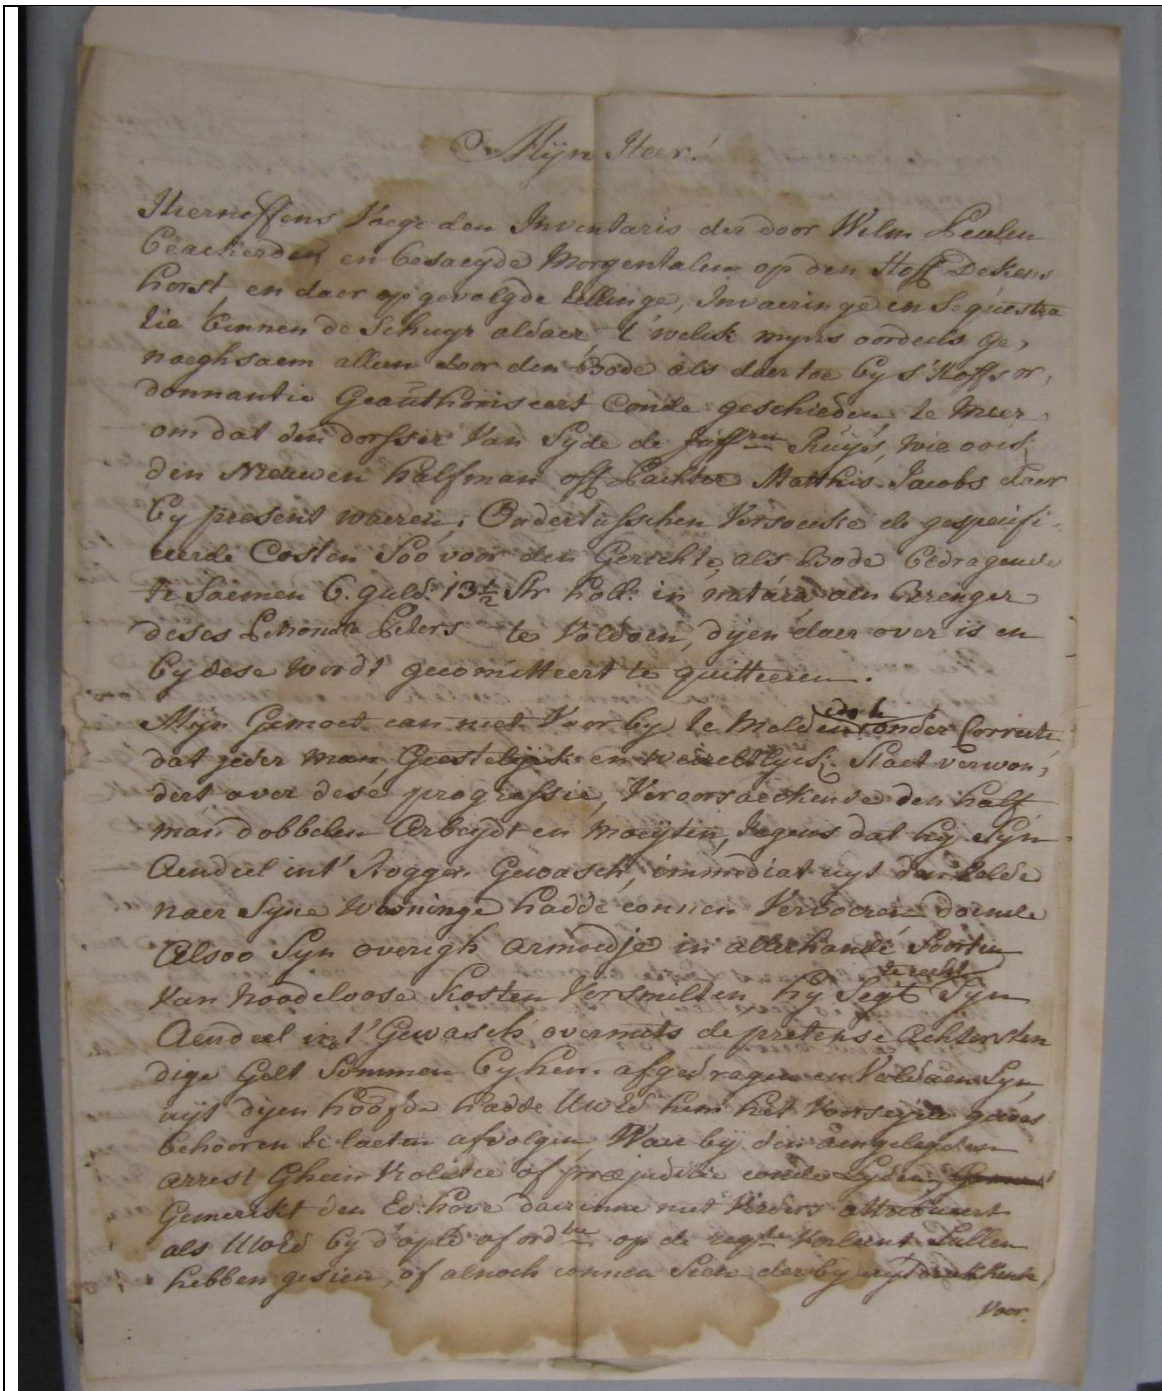 Mijn Heer!
Hierneffens Voege den Inventaris der door Welm Peulen
beackerden en besaeyde Morgentalen op den Hoff Dekens
horst en daer op gevolgde Tellinge, Invaeringe en Sequestra
tie binnen de Scheuyr aldaer, t'welck mijns oordeels ge,
noeghsaem alleen door den Bode als daer toe by s'Hoffs or,
donnantie Geauthoriseert Conde geschieden, te meer
om dat den dorsser Van Syde de Juffren Ruijs, wie oock
den Nieuwen halfman off Pachter Matthis Jacobs daer
by present waeren, Ondertusschen Versoecke de gespecifi-
ceerde Costen Soo voor den Gerichte, als Bode bedragende
te Saemen 6. guld: 13½ Str holl: in natura aen Brenger
deses Petronella Peters te Voldoen, dijen daer over is en
by dese wordt gecomitteert te quitteeren.
Mijn Gemoet can niet Voor by te Melden doch onder Correctie
dat jeder man, Geestelijck en weireltlijck Staet verwon,
dert over dese progressie, Veroorsaeckende den half
man dobbelen Arbeydt en moeijten, Jegens dat hij Syn
Aendeel int' Rogge Gewasch, immediat uyt den Velde
naer Syne Wooninge hadde connen Vervoeren doende
Alsoo Syn overigh armoedje in allerhande Soorten
Van noodeloose Kosten Versmilten, hy Segt te recht Syn
Aendeel in t' Gewasch overmits de pretense Achtersten
dige Gelt Sommen by hem afgedragen en Voldaen Syn,
uijt dijen hoofde hadde UwEd hem het Voorseyde gewas
behooren te laeten afvolgen, Waer bij den aengelegden
arrest Gheen Violentie of præjuditie conde Lyden,
Gemerckt den Ed: hove daerinne niet Verders attribueert
als UwEd by d'apld' of ordtie op de reqte Verleent Sullen
hebben gesien, of alnoch connen Sien der by uytdruckende
Voor.